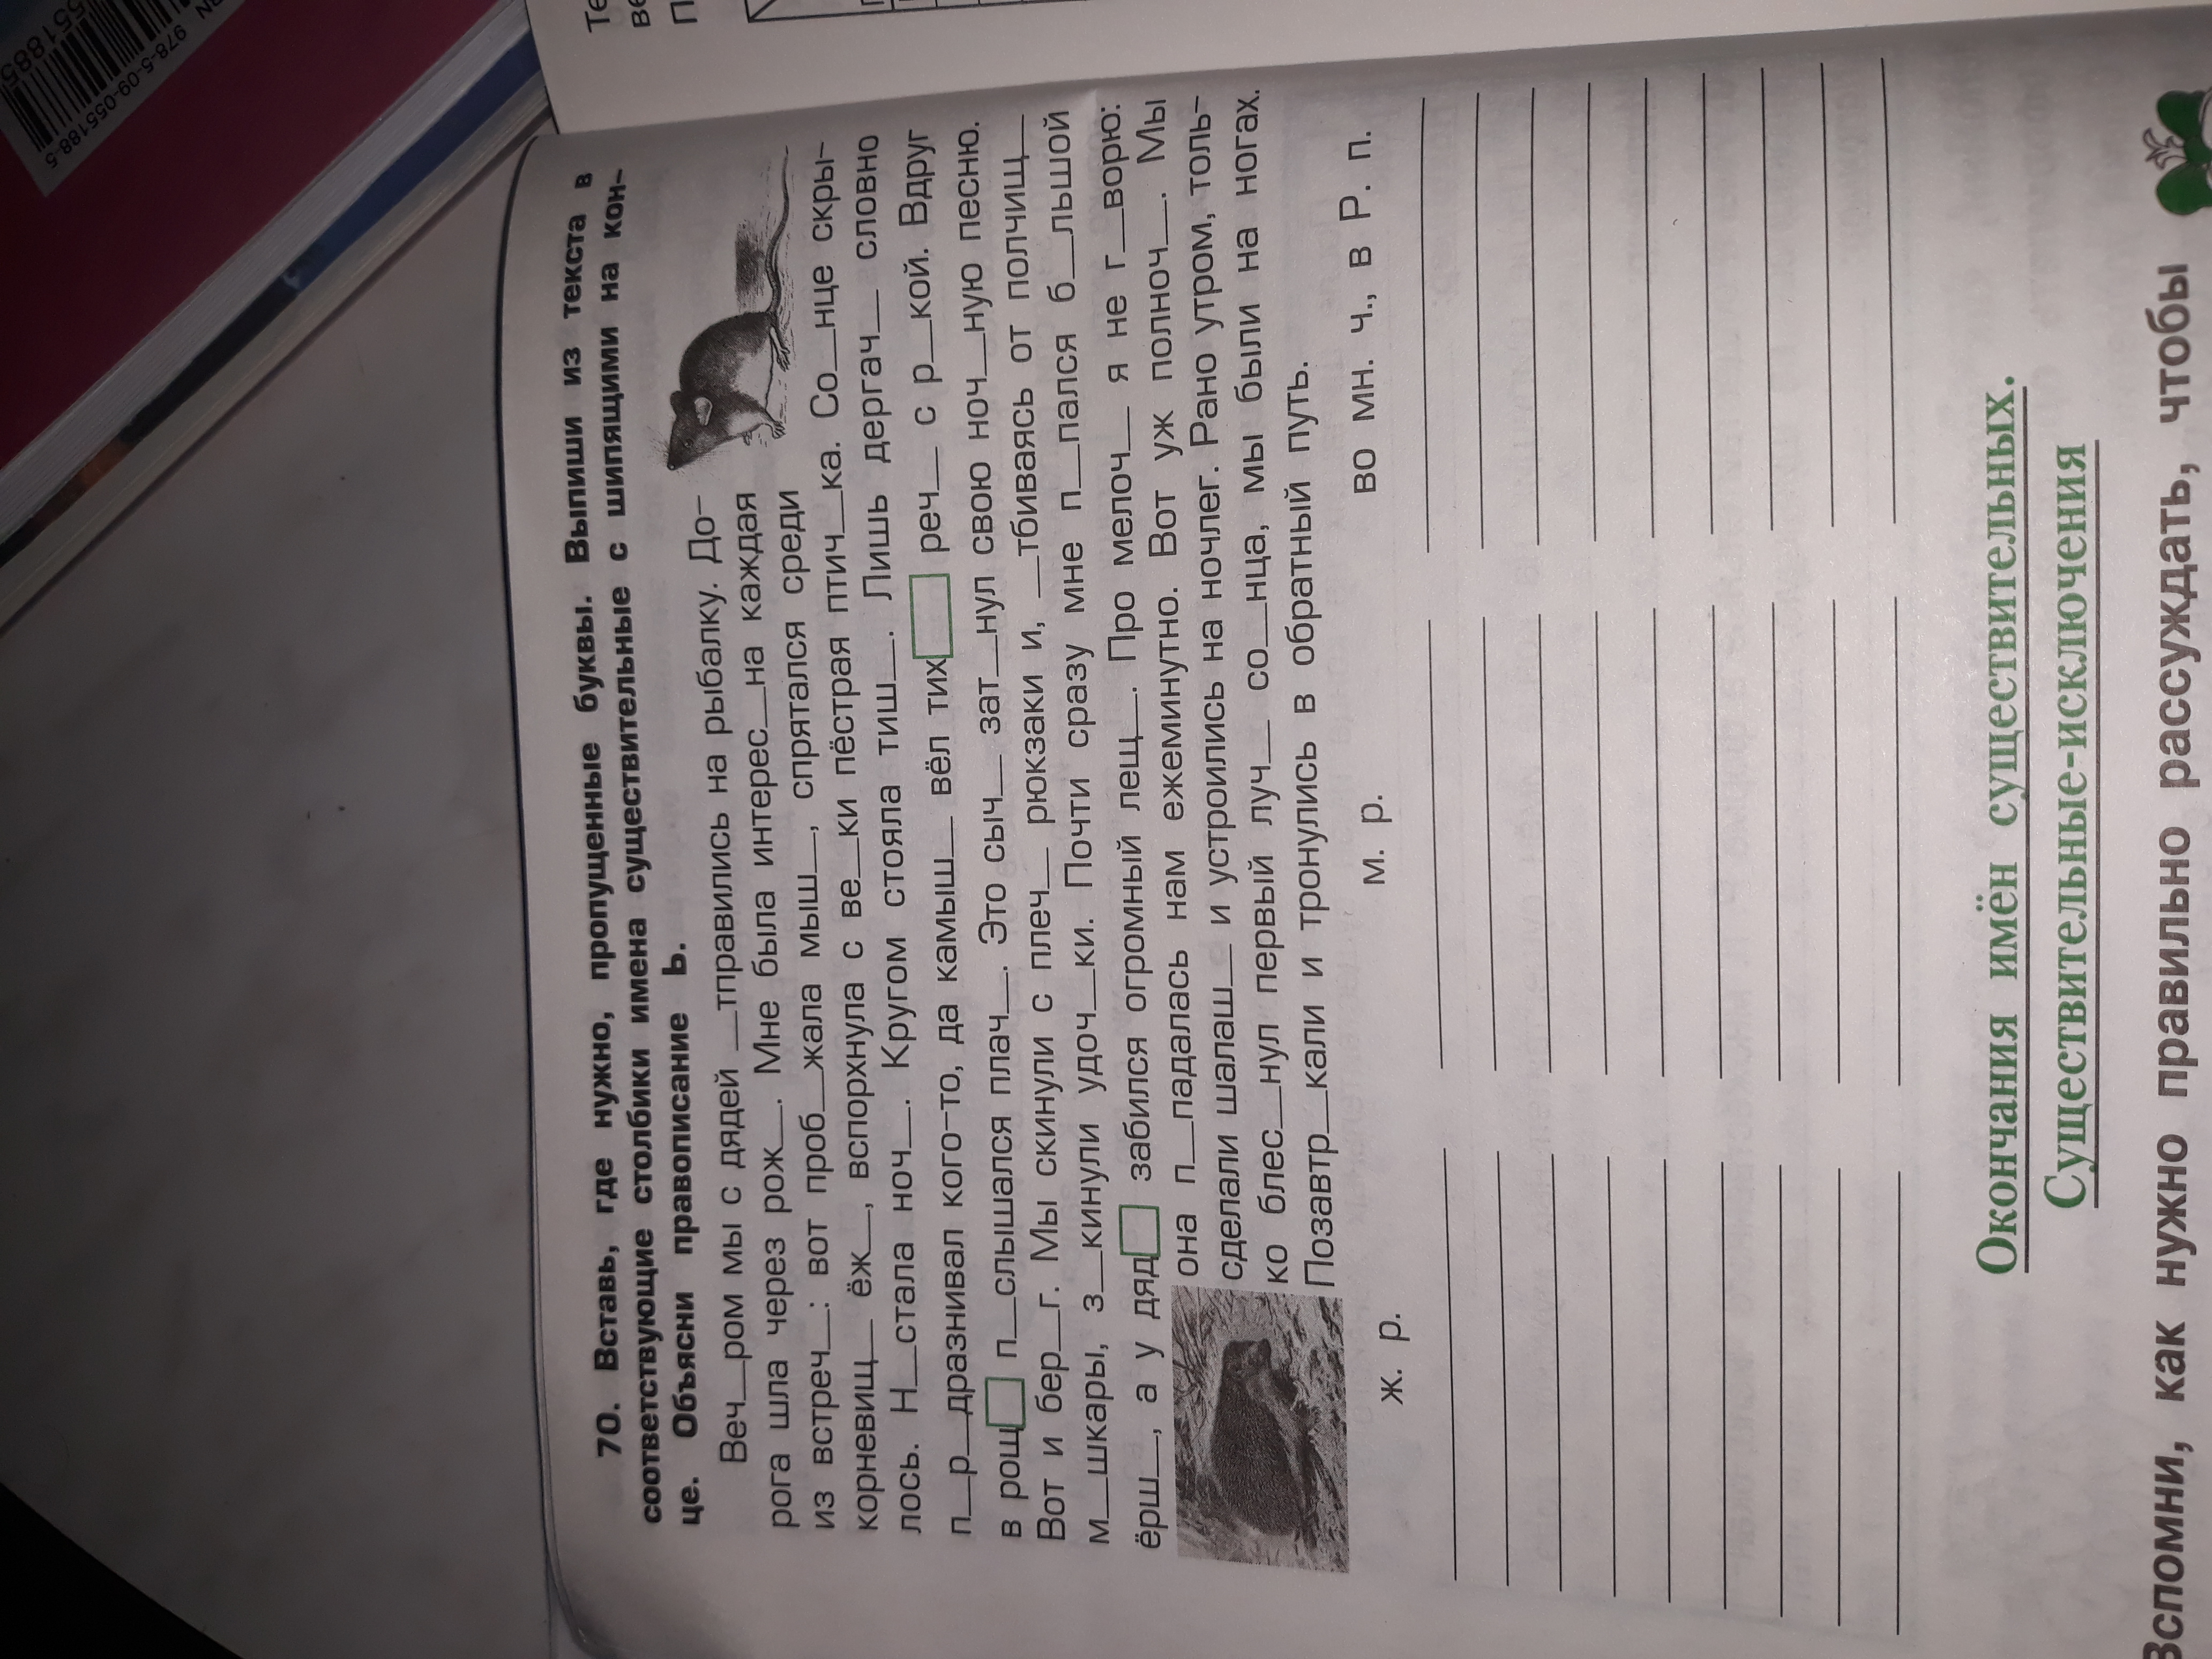 978-5-09-055188-5
70. Вставь, где нужно, пропущенные буквы. Выпиши из текста в
соответствующие столбики имена существительные с шипящими на кон-
це. Объясни правописание ь.
Веч__ром мы с дядей __тправились на рыбалку. До-
рога шла через рож__. Мне была интерес__на каждая
из встреч__: вот проб__жала мыш__, спрятался среди
корневищ__ ёж__, вспорхнула с ве__ки пёстрая птич__ка. Со__нце скры-
лось. Н__стала ноч__. Кругом стояла тиш__. Лишь дергач__ словно
п__р__дразнивал кого-то, да камыш__ вёл тих□ реч__ с р__кой. Вдруг
в рощ□ п__слышался плач__. Это сыч__ зат__нул свою ноч__ную песню.
Вот и бер__г. Мы скинули с плеч__ рюкзаки и, __тбиваясь от полчищ__
м__шкары, з__кинули удоч__ки. Почти сразу мне п__пался б__льшой
ёрш__, а у дяд□ забился огромный лещ__. Про мелоч__ я не г__ворю:
она п__падалась нам ежеминутно. Вот уж полноч__. Мы
сделали шалаш__ и устроились на ночлег. Рано утром, толь-
ко блес__нул первый луч__ со__нца, мы были на ногах.
Позавтр__кали и тронулись в обратный путь.
ж. р. м. р. во мн. ч., в Р. п.
Окончания имён существительных.
Существительные-исключения
Вспомни, как нужно правильно рассуждать, чтобы